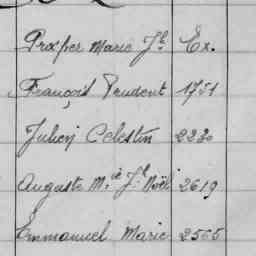 Prosper Marie Jh Ex.
François Prudent 1751
Julien Célestin 2230
Auguste Mie Jh Noël 2619
Emmanuel Marie 2565